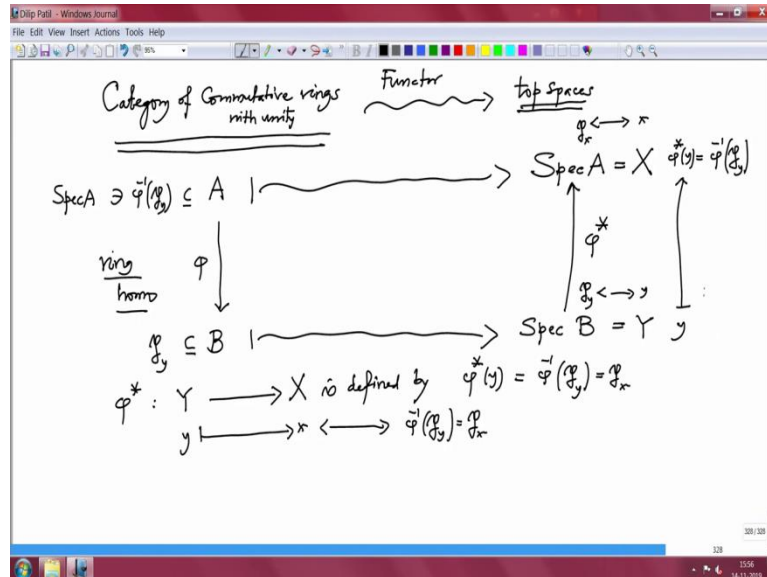 Dilip Patil - Windows Journal
File Edit View Insert Actions Tools Help
95%
Category of Commutative rings
with unity
Functor
top spaces
𝔭ₓ ⟷ x
Spec A ∋ φ⁻¹(𝔭ᵧ) ⊆ A
Spec A = X φ*(y) = φ⁻¹(𝔭ᵧ)
ring
homo
φ
φ*
𝔭ᵧ ⟷ y
𝔭ᵧ ⊆ B
Spec B = Y y
φ* : Y ⟶ X is defined by φ*(y) = φ⁻¹(𝔭ᵧ) = 𝔭ₓ
y ⟼ x ⟷ φ⁻¹(𝔭ᵧ) = 𝔭ₓ
328 / 328
328
15:56
14-11-2019